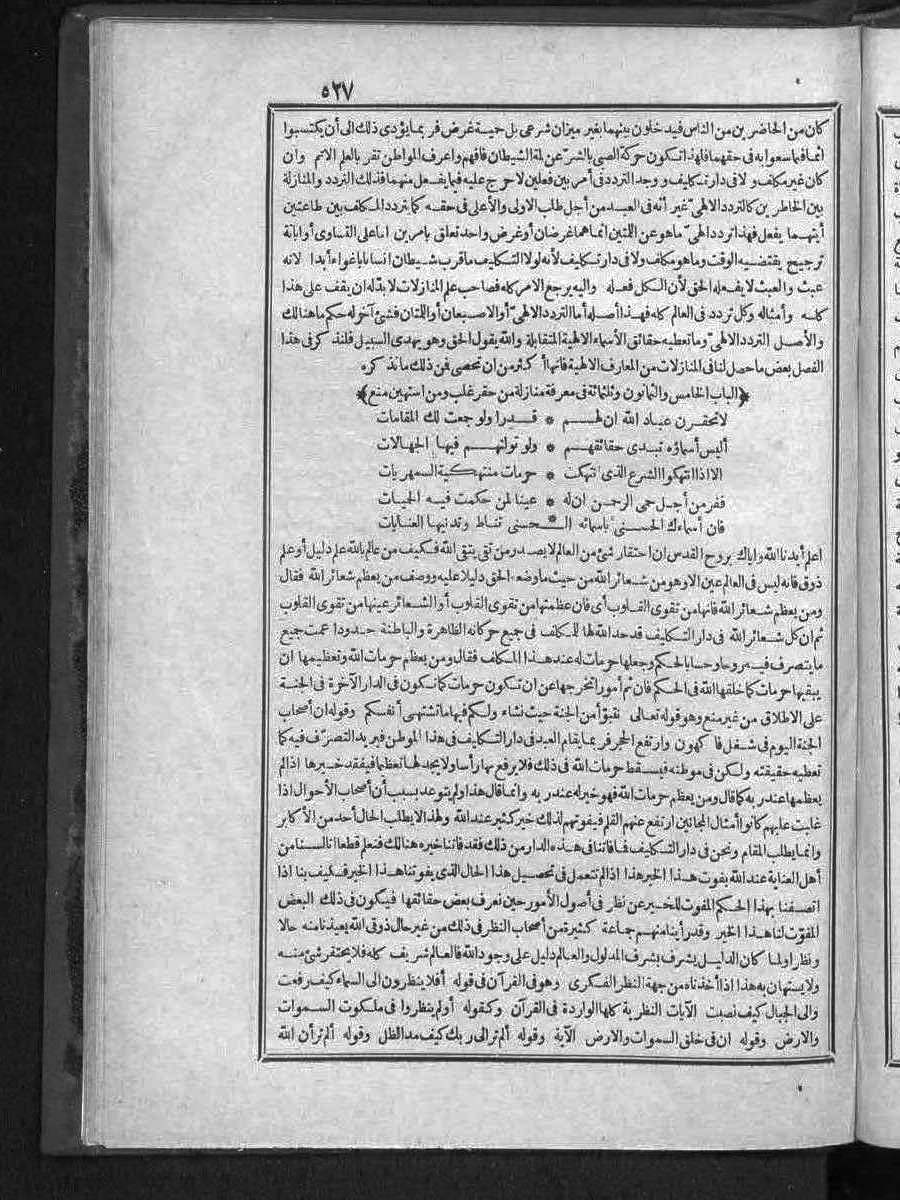 ٥٢٧
كان من الحاضرين من الناس فيدخلون بينهما بغير ميزان شرعي بل حمية غرض فربما يؤدي ذلك الى أن يكتسبوا
اثما فيما سعوا به في حقهما فلهذا تكون حركة الصبي بالشر عن لمة الشيطان فافهم واعرف المواطن تفز بالعلم الاتم وان
كان غير مكلف ولا في دار تكليف ووجد التردد في أمر بين فعلين لا حرج عليه فيما يفعل منهما فذلك التردد والمنازلة
بين الخاطرين كالتردد الالهي غير أنه في العبد من أجل طلب الاولى والأعلى في حقه كما يتردد المكلف بين طاعتين
أيتهما يفعل فهذا تردد الهي ما هو عن اللمتين انما هما غرضان أو غرض واحد تعلق بامرين اما على التساوي أو ابانة
ترجيح يقتضيه الوقت وما هو مكلف ولا في دار تكليف لأنه لولا التكليف ما قرب شيطان انسانا باغواء أبدا لانه
عبث والعبث لا يفعله الحق لأن الكل فعله واليه يرجع الامر كله فصاحب علم المنازلات لا بد له ان يقف على هذا
كله وأمثاله وكل تردد في العالم كله فهذا أصله أما التردد الالهي أو الاصبعان أو اللمتان فشئ آخر له حكم ما هنالك
والأصل التردد الالهي وما تعطيه حقائق الأسماء الالهية المتقابلة والله يقول الحق وهو يهدي السبيل فلنذكر في هذا
الفصل بعض ما حصل لنا في المنازلات من المعارف الالهية فانها أكثر من ان تحصى فمن ذلك ما نذكره
﴿الباب الخامس والثمانون وثلثمائة في معرفة منازلة من حقر غلب ومن استهين منع﴾
لا تحقرن عباد الله ان لهم * قدرا ولو جمعت لك المقامات
أليس أسماؤه تبدي حقائقهم * ولو تولتهم فيها الجهالات
الا اذا انتهكوا الشرع الذي انتهكت * حرمات منتهكيه السمهريات
ففر من أجل حمى الرحمن ان له * عينا لمن حكمت فيه الحميات
فان أسماءك الحسنى بأسمائه * الحسنى تناط وتدنيها العنايات
اعلم أيدنا الله واياك بروح القدس ان احتقار شئ من العالم لا يصدر من تقي يتقي الله فكيف من عالم بالله علم دليل أو علم
ذوق فانه ليس في العالم عين الا وهو من شعائر الله من حيث ما وضعه الحق دليلا عليه ووصف من يعظم شعائر الله فقال
ومن يعظم شعائر الله فانها من تقوى القلوب أي فان عظمتها من تقوى القلوب أو الشعائر عينها من تقوى القلوب
ثم ان كل شعائر الله في دار التكليف قد حد الله لها للمكلف في جميع حركاته الظاهرة والباطنة حدودا عمت جميع
ما يتصرف فيه روحا وحسا بالحكم وجعلها حرمات له عند هذا المكلف فقال ومن يعظم حرمات الله وتعظيمها ان
يبقيها حرمات كما خلقها الله في الحكم فان ثم أمورا تخرجها عن ان تكون حرمات كما تكون في الدار الآخرة في الجنة
على الاطلاق من غير منع وهو قوله تعالى نتبوأ من الجنة حيث نشاء ولكم فيها ما تشتهي أنفسكم وقوله ان أصحاب
الجنة اليوم في شغل فاكهون وارتفع الحجر فربما يقام العبد في دار التكليف في هذا الموطن فيريد التصرف فيه كما
تعطيه حقيقته ولكن في موطنه فيسقط حرمات الله في ذلك فلا يرفع بها رأسا ولا يجد لها تعظيما فيفقد خيرها اذا لم
يعظمها عند ربه كما قال ومن يعظم حرمات الله فهو خير له عند ربه وانما قال هذا ولم يتوعد بسبب أن أصحاب الأحوال اذا
غلبت عليهم كانوا أمثال المجانين ارتفع عنهم القلم فيفوتهم لذلك خير كثير عند الله ولهذا لا يطلب الحال أحد من الأكابر
وانما يطلب المقام ونحن في دار التكليف فما فاتنا في هذه الدار من ذلك فقد فاتنا خيره هنالك فنعلم قطعا انا لسنا من
أهل العناية عند الله بفوت هذا الخير هذا اذا لم نتعمل في تحصيل هذا الحال الذي يفوتنا هذا الخير فكيف بنا اذا
اتصفنا بهذا الحكم المفوت للخير عن نظر في أصول الأمور حين نعرف بعض حقائقها فيكون في ذلك البعض
المفوّت لنا هذا الخير وقد رأينا منهم جماعة كثيرة من أصحاب النظر في ذلك من غير حال ذوقي الله يعيذنا منه حالا
ونظرا ولما كان الدليل يشرف بشرف المدلول والعالم دليل على وجود الله فالعالم شريف كله فلا يحتقر شئ منه
ولا يستهان به هذا اذا أخذناه من جهة النظر الفكري وهو في القرآن في قوله أفلا ينظرون الى السماء كيف رفعت
والى الجبال كيف نصبت الآيات النظرية كلها الواردة في القرآن وكقوله أولم ينظروا في ملكوت السموات
والارض وقوله ان في خلق السموات والارض الآية وقوله ألم تر الى ربك كيف مد الظل وقوله ألم تر أن الله